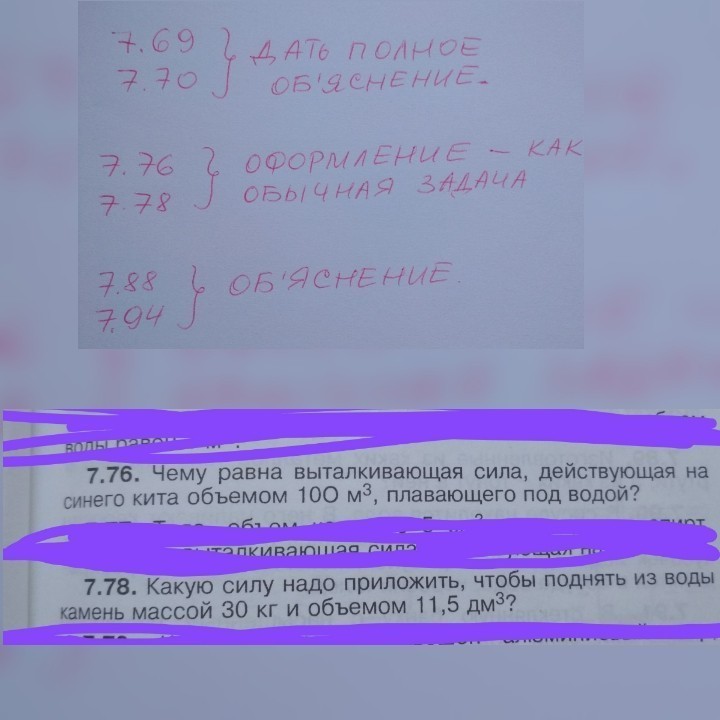 7.69
7.70
ДАТЬ ПОЛНОЕ
ОБ'ЯСНЕНИЕ.
7.76
7.78
ОФОРМЛЕНИЕ – КАК
ОБЫЧНАЯ ЗАДАЧА
7.88
7.94
ОБ'ЯСНЕНИЕ.
7.76. Чему равна выталкивающая сила, действующая на
синего кита объемом 100 м³, плавающего под водой?
7.78. Какую силу надо приложить, чтобы поднять из воды
камень массой 30 кг и объемом 11,5 дм³?